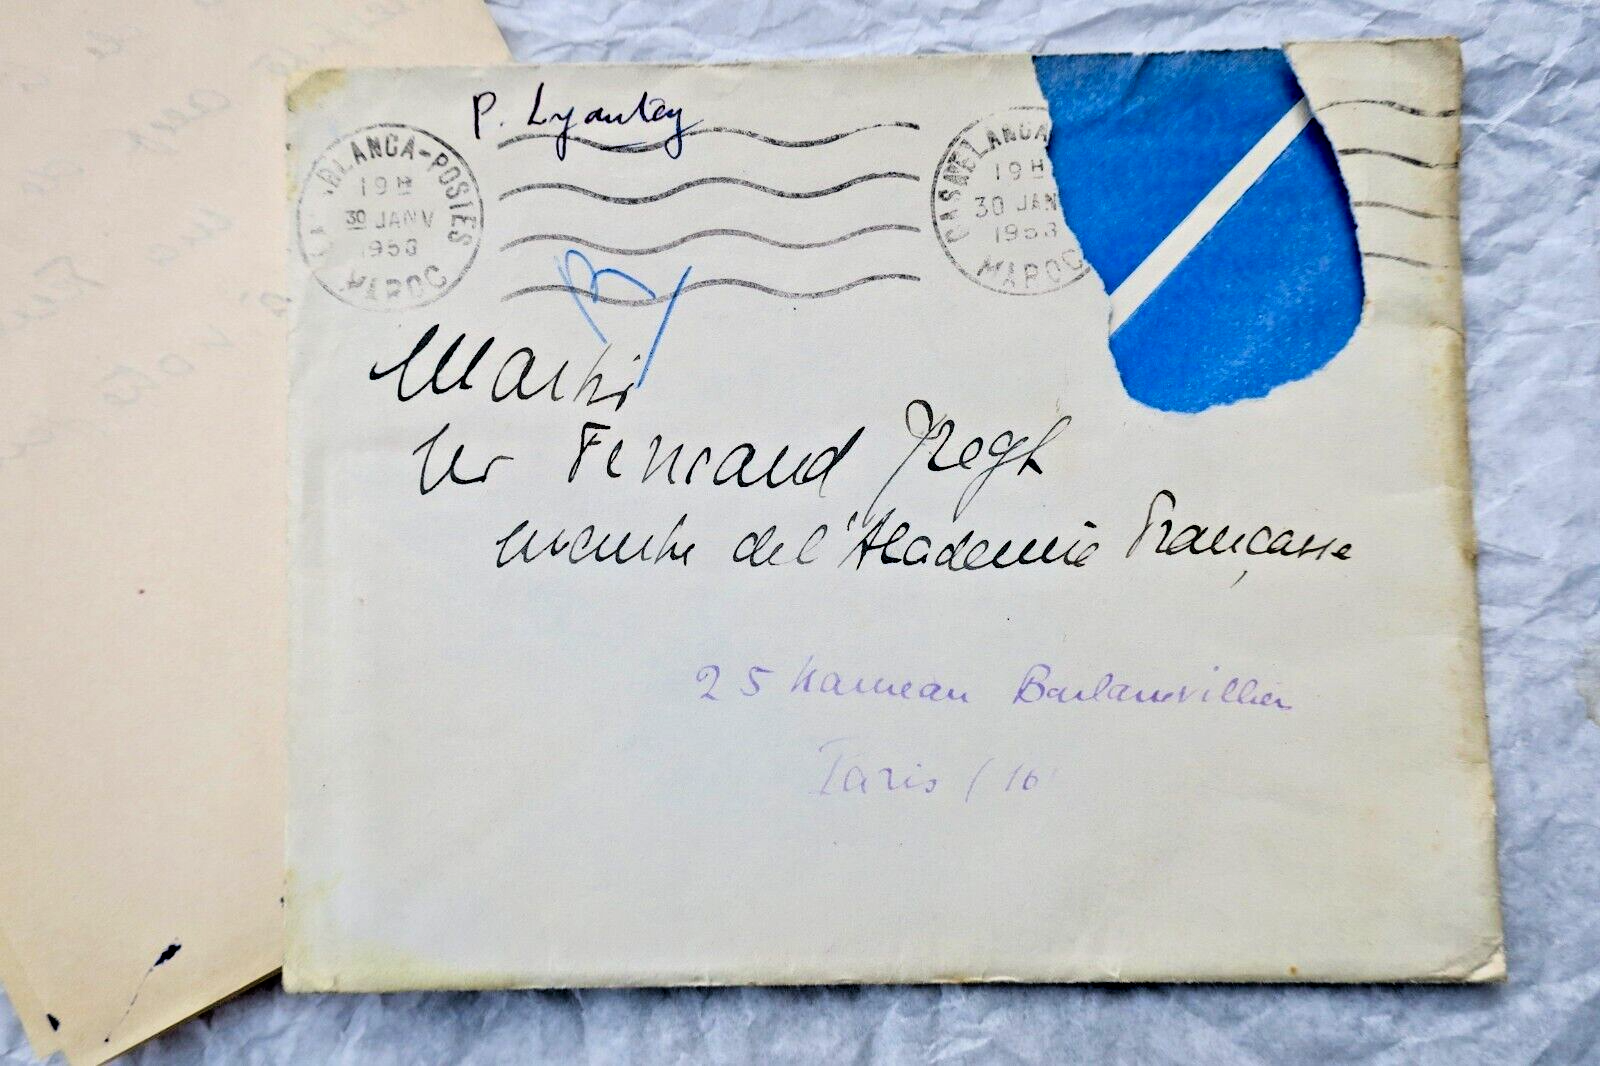 P. Lyautey
CASABLANCA-POSTES
19H
30 JANV
1953
MAROC
CASABLANCA
19H
30 JAN
1953
MAROC
Maître
Mr Fernand Gregh
membre de l'Academie Française
25 Hameau Boulainvillier
Paris (16